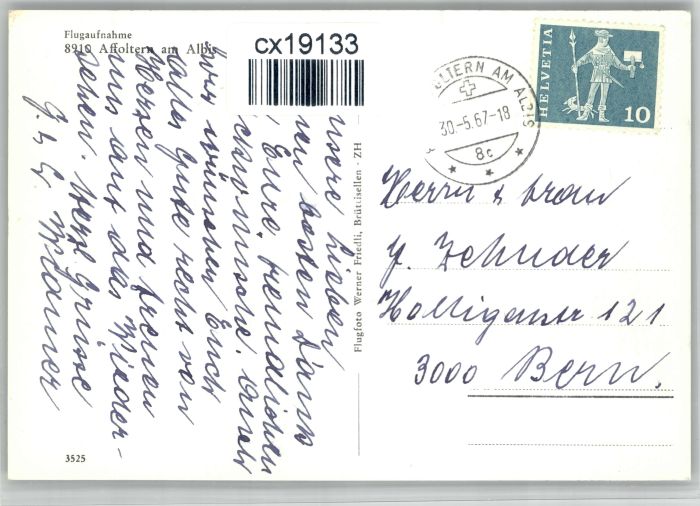 Flugaufnahme
8910 Affoltern am Albis
cx19133
HELVETIA
10
OLTERN AM ALBIS
30-5.67-18
8c
lieben
besten Dank
Eure freundlichen
Auch
wir wünschen Euch
alles Gute recht von
Herzen und freuen
uns auf das Wieder-
sehen. Herzl. Grüsse
G. & G. Widmer
Flugfoto Werner Friedli, Brüttisellen - ZH
Herrn & Frau
Y. Zehnder
Holligenstr 121
3000 Bern.
3525